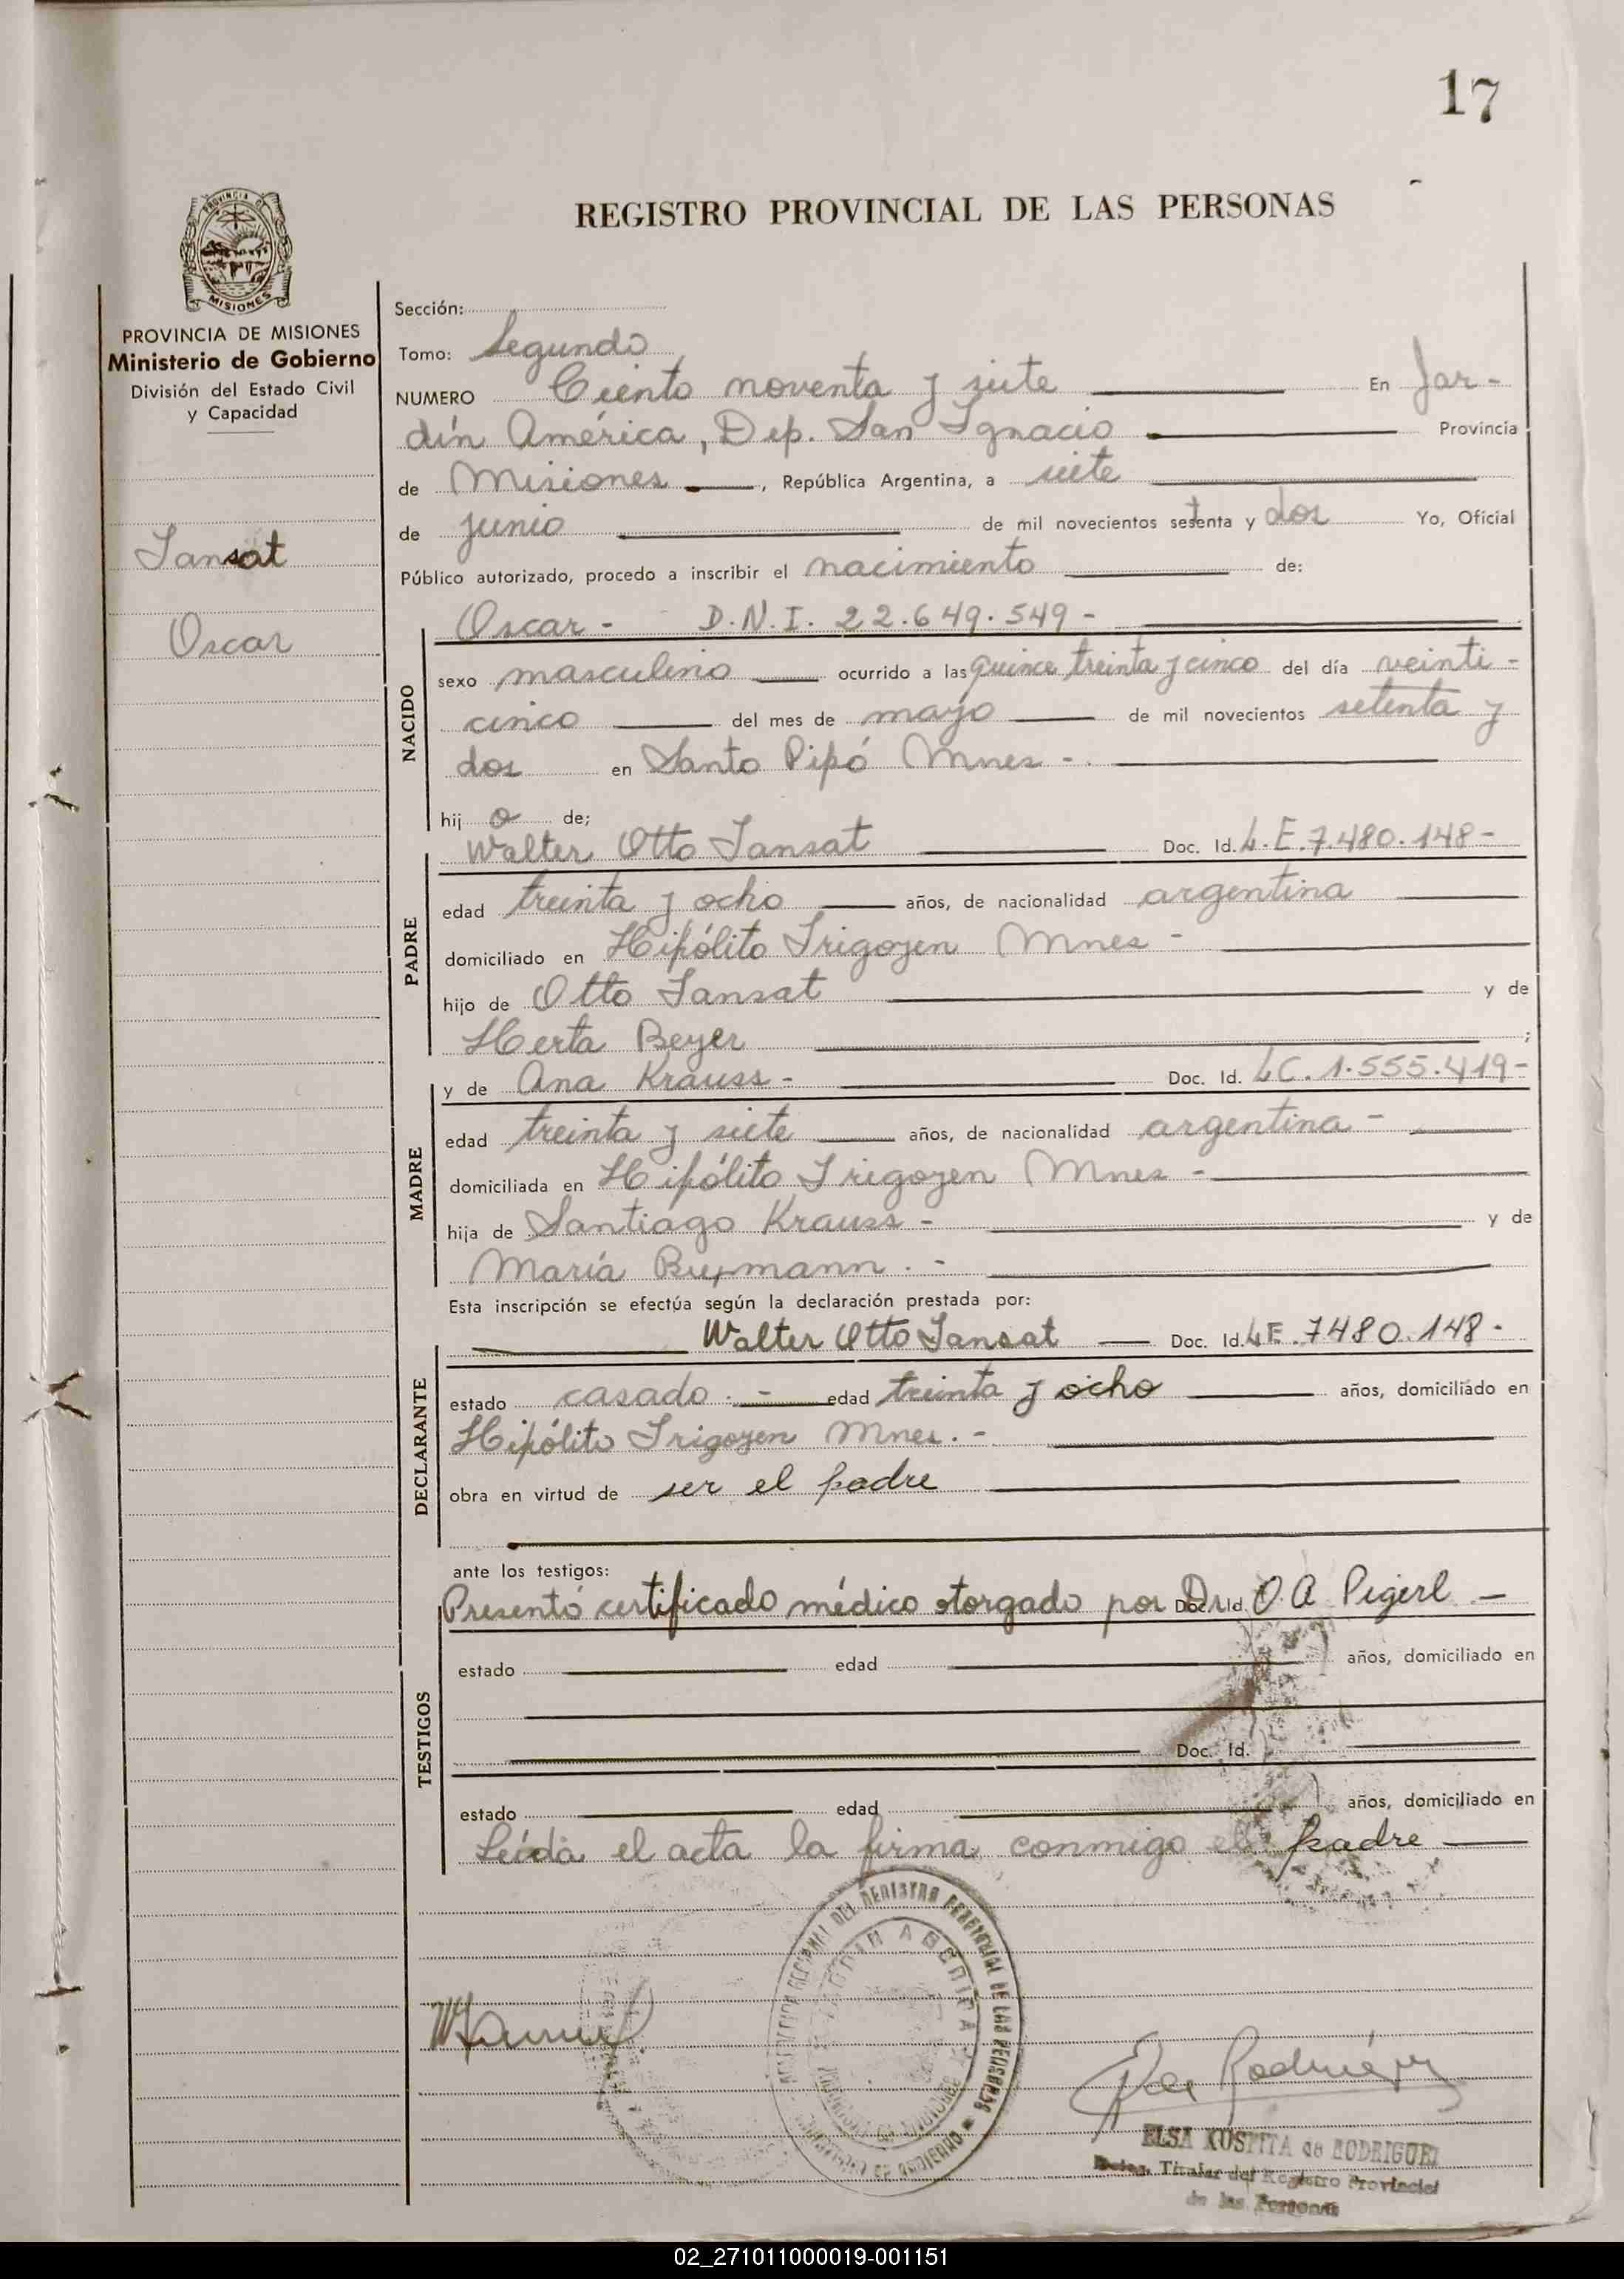 17
REGISTRO PROVINCIAL DE LAS PERSONAS
PROVINCIA DE MISIONES
PROVINCIA DE MISIONES
Ministerio de Gobierno
División del Estado Civil
y Capacidad
Jansat
Oscar
Sección:
Tomo: Segundo
NUMERO Ciento noventa y siete En Jar-
dín América, Dep. San Ignacio Provincia
de Misiones, República Argentina, a siete
de junio de mil novecientos setenta y dos Yo, Oficial
Público autorizado, procedo a inscribir el nacimiento de:
Oscar - D.N.I. 22.649.549 -
NACIDO
sexo masculino ocurrido a las quince treinta y cinco del día veinti-
cinco del mes de mayo de mil novecientos setenta y
dos en Santo Pipó Mnes -.
hijo de;
Walter Otto Jansat Doc. Id. L.E. 7.480.148-
PADRE
edad treinta y ocho años, de nacionalidad argentina
domiciliado en Hipólito Irigoyen Mnes -
hijo de Otto Jansat y de
Herta Beyer ;
y de Ana Krauss - Doc. Id. LC. 1.555.419-
MADRE
edad treinta y siete años, de nacionalidad argentina -
domiciliada en Hipólito Irigoyen Mnes -
hija de Santiago Krauss - y de
María . -
Esta inscripción se efectúa según la declaración prestada por:
Walter Otto Jansat Doc. Id. LE. 7480.148-
DECLARANTE
estado casado . - edad treinta y ocho años, domiciliado en
Hipólito Irigoyen Mnes. -
obra en virtud de ser el padre
ante los testigos:
Presentó certificado médico otorgado por Dr. Doc. Id. O A Pigerl -
TESTIGOS
estado edad años, domiciliado en
Doc. Id.
estado edad años, domiciliado en
Leída el acta la firma conmigo el padre
REGIONAL DEL REGISTRO PROVINCIAL DE LAS PERSONAS
JARDIN AMERICA
MINISTERIO DE GOBIERNO
ELSA KOSPITA de RODRIGUEZ
Deleg. Titular del Registro Provincial
de las Personas
02_271011000019-001151